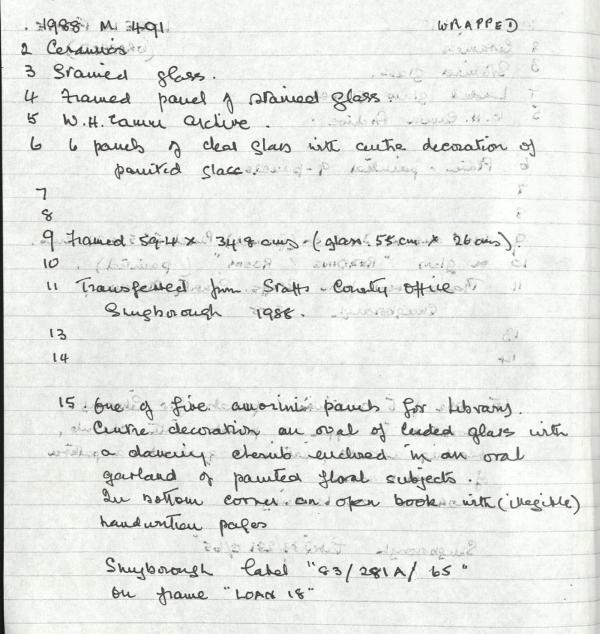 . 1988 M 491 WRAPPED
2 Ceramics
3 Stained glass.
4 Framed panel of stained glass.
5 W.H. Archive.
6 6 panels of clear glass with centre decoration of
painted glass.
7
8
9 Framed 59.4 x 34.8 cms - (glass 55cm x 26cms).
10
11 Transferred from Staffs - County Office
Shugborough 1988.
13
14
15. One of five amorini panels for library.
Centre decoration an oval of leaded glass with
a dancing cherub enclosed in an oval
garland of painted floral subjects.
In bottom corner an open book with (illegible)
handwritten pages
Shugborough label "83/281A/65"
on frame "LOAN 18"